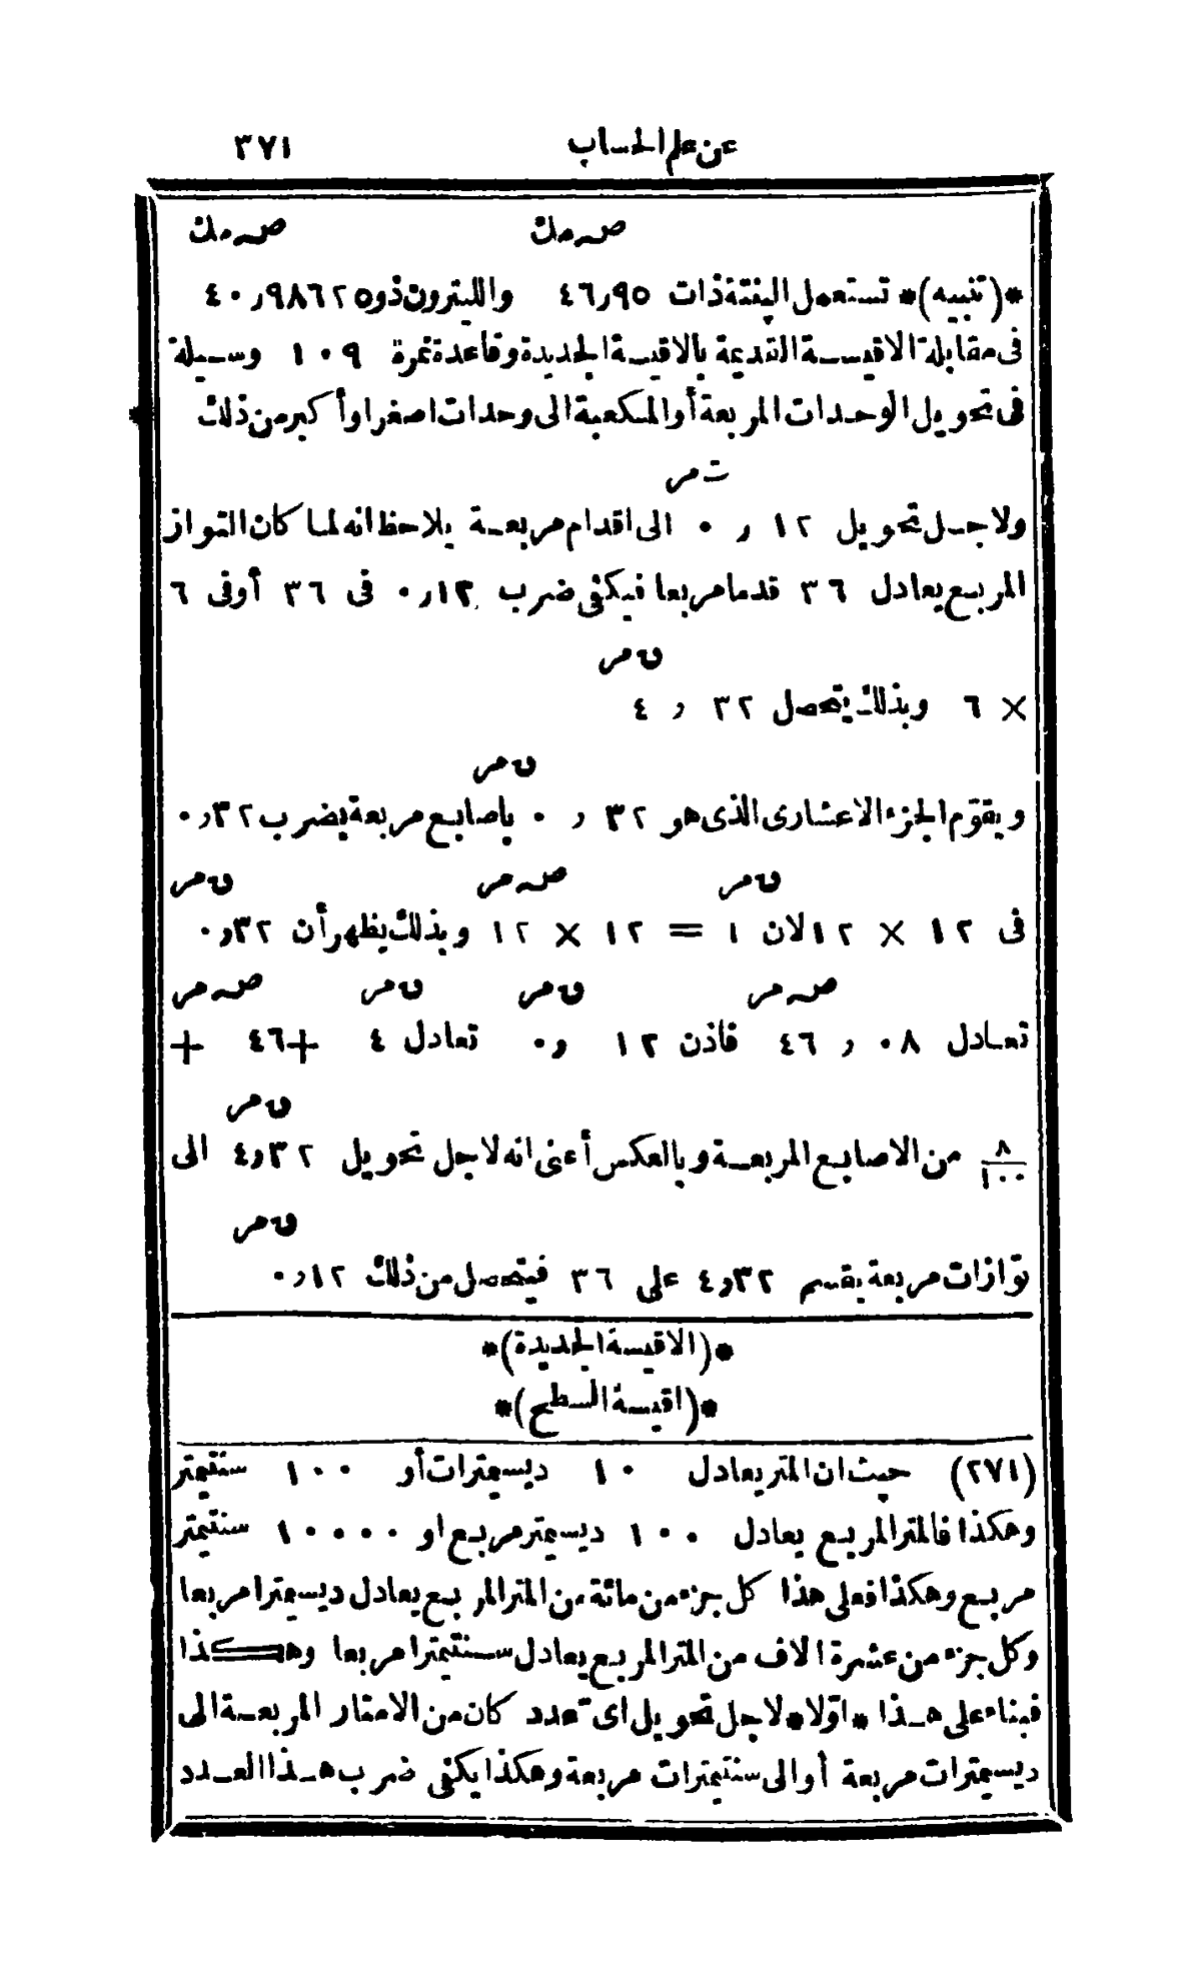 عن علم الحساب ٣٧١
صه مك صه مك
*(تنبيه)* تستعمل البنتة ذات ٤٦٫٩٥ والليترون ذو ٤٠٫٩٨٦٢٥
فى مقابلة الاقيسة القديمة بالاقيسة الجديدة وقاعدة نمرة ١٠٩ وسيلة
فى تحويل الوحدات المربعة أو المكعبة الى وحدات اصغر او أكبر من ذلك
ت مر
ولاجل تحويل ١٢ ر ٠ الى اقدام مربعة يلاحظ انه لما كان التواز
المربع يعادل ٣٦ قدما مربعا فيكفى ضرب ٠٫١٢ فى ٣٦ أو فى ٦
ق مر
× ٦ وبذلك يتحصل ٣٢ ر ٤
ق مر
ويقوّم الجزء الاعشارى الذى هو ٣٢ ر ٠ باصابع مربعة بضرب ٠٫٣٢
ق مر صه مر ق مر
فى ١٢ × ١٢ لان ١ = ١٢ × ١٢ وبذلك يظهر أن ٠٫٣٢
صه مر ق مر ق مر صه مر
تعادل ٠٨ ر ٤٦ فاذن ١٢ ر٠ تعادل ٤ +٤٦ +
ق مر
٨/١٠٠ من الاصابع المربعة وبالعكس أعنى انه لاجل تحويل ٤٫٣٢ الى
ق مر
توازات مربعة يقسم ٤٫٣٢ على ٣٦ فيتحصل من ذلك ٠٫١٢
*(الاقيسة الجديدة)*
*(اقيسة السطح)*
(٢٧١) حيث ان المتر يعادل ١٠ ديسيمترات أو ١٠٠ سنتيمتر
وهكذا فالمتر المربع يعادل ١٠٠ ديسيمتر مربع او ١٠٠٠٠ سنتيمتر
مربع وهكذا فعلى هذا كل جزء من مائة من المتر المربع يعادل ديسيمترا مربعا
وكل جزء من عشرة الاف من المتر المربع يعادل سنتيمترا مربعا وهكذا
فبناء على هذا *اوّلا* لاجل تحويل اى عدد كان من الامتار المربعة الى
ديسيمترات مربعة أو الى سنتيمترات مربعة وهكذا يكفى ضرب هذا العدد